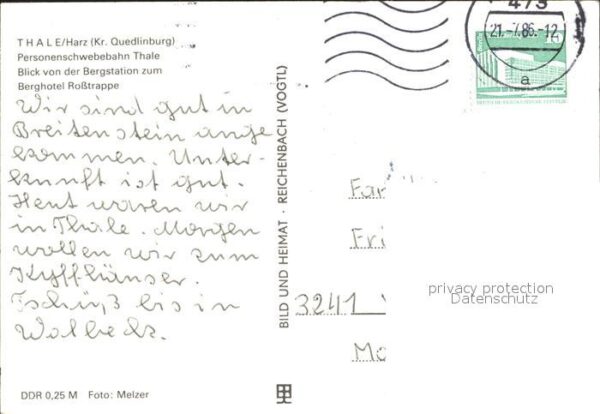 THALE/Harz (Kr. Quedlinburg)
Personenschwebebahn Thale
Blick von der Bergstation zum
Berghotel Roßtrappe
Wir sind gut in
Breitenstein ange
kommen. Unter-
kunft ist gut.
Heut waren wir
in Thale. Morgen
wollen wir zum
Kyffhäuser.
Tschüß bis in
Walbeck.
DDR 0,25 M Foto: Melzer
BILD UND HEIMAT · REICHENBACH (VOGTL)
473
21.-7.86.-12
a
Fri
3241
privacy protection
Datenschutz